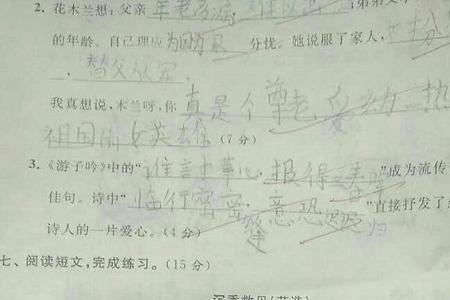 2. 花木兰想:父亲年老多病,难以
的年龄。自己理应为国为家 分忧。她说服了家人,
、替父从军。
我真想说,木兰呀,你真是个尊老爱幼、热
祖国的女英雄(7分)
3.《游子吟》中的“谁言寸草心,报得三春晖”成为流传
佳句。诗中“临行密密缝,意恐迟迟归”直接抒发了
诗人的一片爱心。(4分)
七、阅读短文,完成练习。(15分)